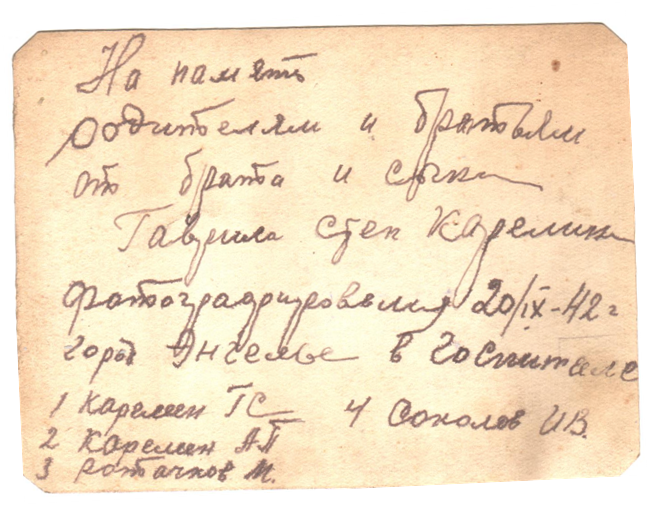 На память
родителям и братьям
от брата и сына
Гаврила Степ Карелина
Фотографировался 20/IX-42г
горо Энгельсе в госпитале
1 Карелин ГС 4 Соколов ИВ.
2 Карелин АП
3 Ротачков М.